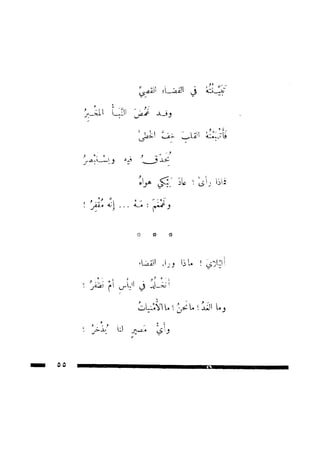 في الفضاء القصيِّ
وقد غمُضَ النَّبأُ المُخْبِرُ
فأتبعْتُهُ القلبَ خِفَّ الخُطىْ
يُحدّقُ فيه ويستبصرُ
فماذا رأى؟ عاد يَبكي هواهُ
وغمْغَمَ : مَهْ ... إنّهُ مُقْفِرُ !
* * *
أليلايَ ! ماذا وراء القضاء
أنخلُدُ في اليأسِ أمْ نظْفَرُ ؟
وما الغدُ ؟ ما نحنُ ؟ ما الأُمْنياتُ
وأيُّ مصيرٍ لنا يُذْخَرُ ؟
٥٥